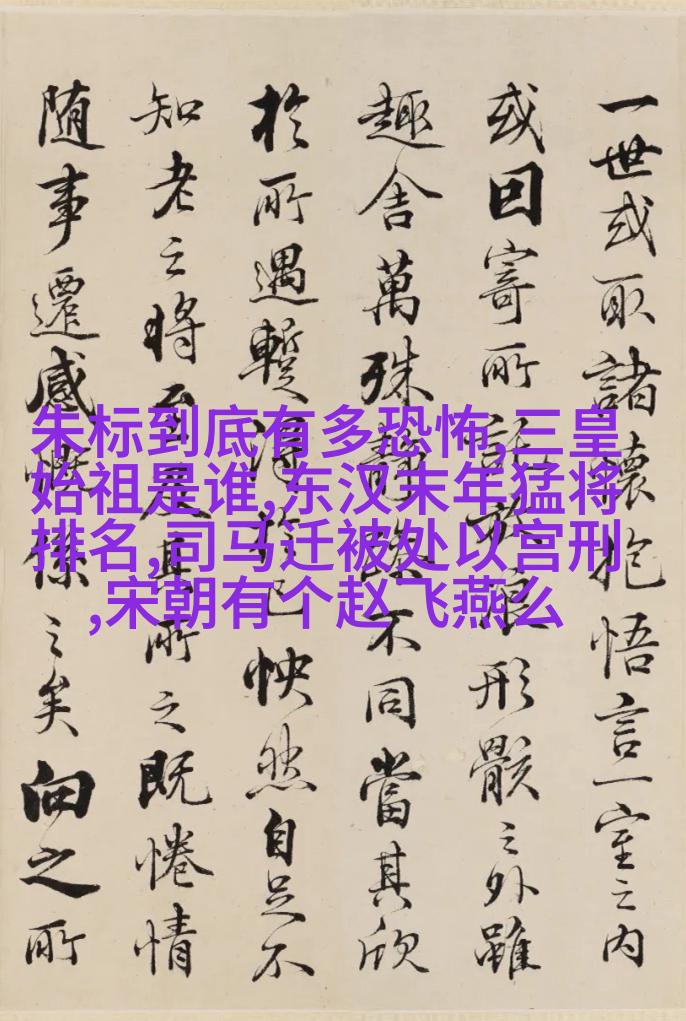 一世或取諸懷抱悟言一室之內
或因寄所託放浪形骸之外雖
趣舍萬殊靜躁不同當其欣
於所遇蹔得於己怏然自足不
知老之將至及其所之既惓情
隨事遷感慨係之矣向之所
朱标到底有多恐怖,三皇
始祖是谁,东汉末年猛将
排名,司马迁被处以宫刑
,宋朝有个赵飞燕么